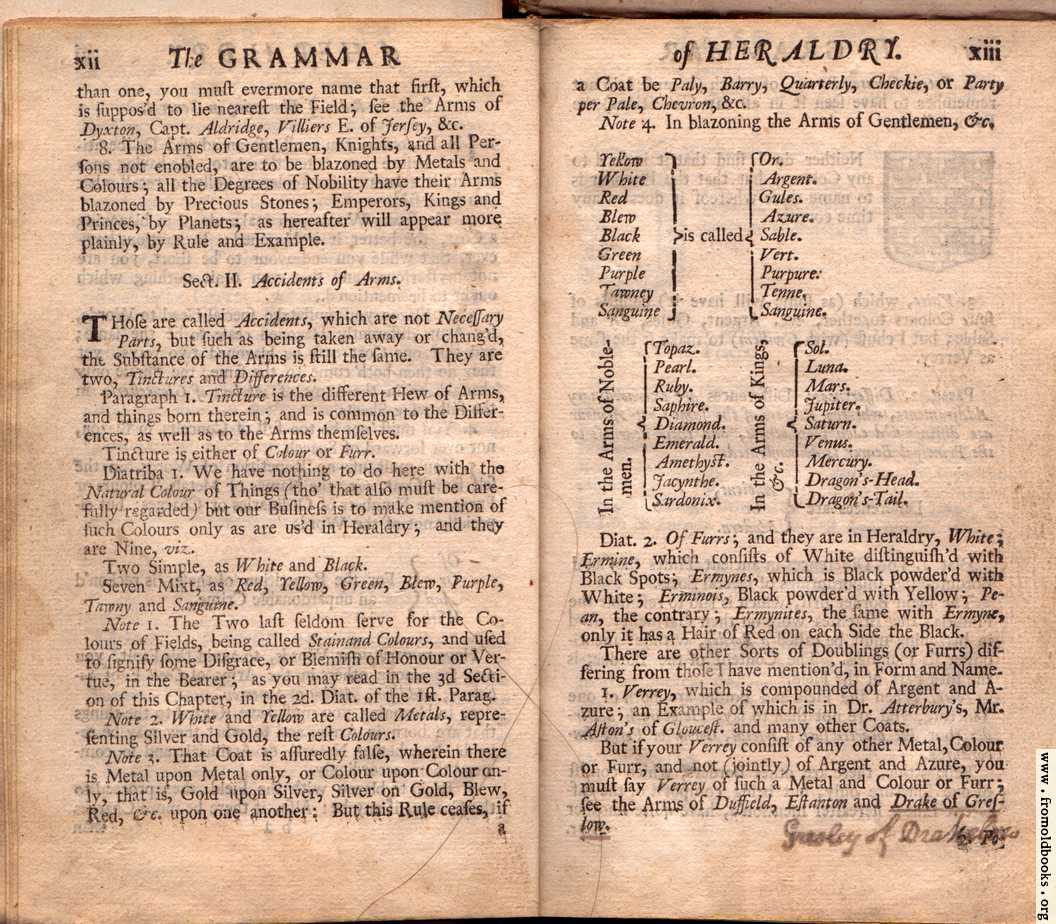 xii The GRAMMAR
than one, you muſt evermore name that firſt, which
is ſuppos'd to lie neareſt the Field; ſee the Arms of
Dyxton, Capt. Aldridge, Villiers E. of Jerſey, &c.
8. The Arms of Gentlemen, Knights, and all Per-
ſons not enobled, are to be blazoned by Metals and
Colours; all the Degrees of Nobility have their Arms
blazoned by Precious Stones; Emperors, Kings and
Princes, by Planets; as hereafter will appear more
plainly, by Rule and Example.
Sect. II. Accidents of Arms.
THoſe are called Accidents, which are not Neceſſary
Parts, but ſuch as being taken away or chang'd,
the Subſtance of the Arms is ſtill the ſame. They are
two, Tinctures and Differences.
Paragraph 1. Tincture is the different Hew of Arms,
and things born therein; and is common to the Differ-
ences, as well as to the Arms themſelves.
Tincture is either of Colour or Furr.
Diatriba 1. We have nothing to do here with the
Natural Colour of Things (tho' that alſo muſt be care-
fully regarded) but our Buſineſs is to make mention of
ſuch Colours only as are us'd in Heraldry; and they
are Nine, viz.
Two Simple, as White and Black.
Seven Mixt, as Red, Yellow, Green, Blew, Purple,
Tawny and Sanguine.
Note 1. The Two laſt ſeldom ſerve for the Co-
lours of Fields, being called Stainand Colours, and uſed
to ſignify ſome Diſgrace, or Blemiſh of Honour or Ver-
tue, in the Bearer; as you may read in the 3d Secti-
on of this Chapter, in the 2d. Diat. of the 1ſt. Parag.
Note 2. White and Yellow are called Metals, repre-
ſenting Silver and Gold, the reſt Colours.
Note 3. That Coat is aſſuredly falſe, wherein there
is Metal upon Metal only, or Colour upon Colour on-
ly, that is, Gold upon Silver, Silver on Gold, Blew,
Red, &c. upon one another: But this Rule ceaſes, if
a
of HERALDRY. xiii
a Coat be Paly, Barry, Quarterly, Checkie, or Party
per Pale, Chevron, &c.
Note 4. In blazoning the Arms of Gentlemen, &c.
Yellow
White
Red
Blew
Black
Green
Purple
Tawney
Sanguine
is called
Or.
Argent.
Gules.
Azure.
Sable.
Vert.
Purpure:
Tenne.
Sanguine.
In the Arms of Noble-
men.
Topaz.
Pearl.
Ruby.
Saphire.
Diamond.
Emerald.
Amethyſt.
Jacynthe.
Sardonix.
In the Arms of Kings,
&c.
Sol.
Luna.
Mars.
Jupiter.
Saturn.
Venus.
Mercury.
Dragon's-Head.
Dragon's-Tail.
Diat. 2. Of Furrs; and they are in Heraldry, White;
Ermine, which conſiſts of White diſtinguiſh'd with
Black Spots; Ermynes, which is Black powder'd with
White; Erminois, Black powder'd with Yellow; Pe-
an, the contrary; Ermynites, the ſame with Ermyne,
only it has a Hair of Red on each Side the Black.
There are other Sorts of Doublings (or Furrs) dif-
fering from thoſe I have mention'd, in Form and Name.
1. Verrey, which is compounded of Argent and A-
zure; an Example of which is in Dr. Atterbury's, Mr.
Aſton's of Gloucest. and many other Coats.
But if your Verrey conſiſt of any other Metal, Colour
or Furr, and not (jointly) of Argent and Azure, you
muſt ſay Verrey of ſuch a Metal and Colour or Furr;
ſee the Arms of Duffield, Eſtanton and Drake of Greſ-
low.
Gresley of
www.fromoldbooks.org